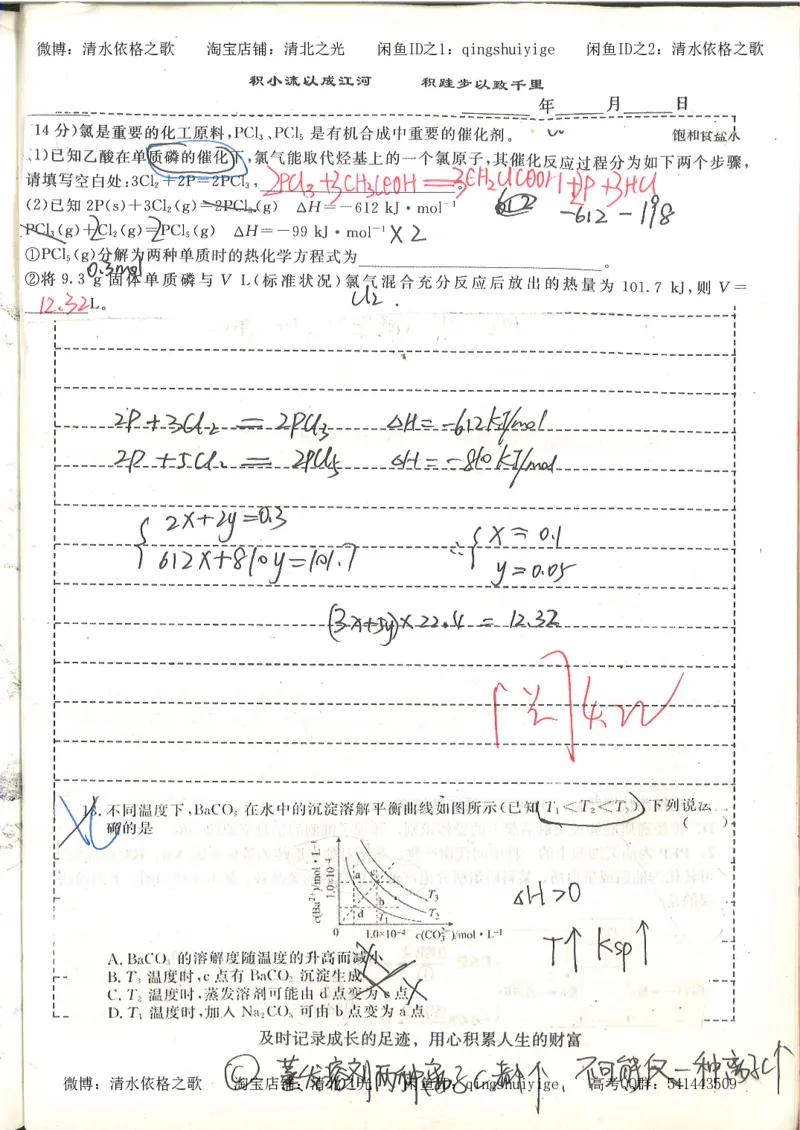 微博：清水依格之歌 淘宝店铺：清北之光 闲鱼ID之1：qingshuiyige 闲鱼ID之2：清水依格之歌
积小流以成江河 积跬步以致千里
年 月 日
14 分)氯是重要的化工原料,PCl₃、PCl₅ 是有机合成中重要的催化剂。 饱和食盐水
1)已知乙酸在单质磷的催化下,氯气能取代烃基上的一个氯原子,其催化反应过程分为如下两个步骤,
请填写空白处:3Cl₂+2P=2PCl₃, 2PCl₃+3CH₃COOH=3CH₂ClCOOH+2P+3HCl 。
(2)已知 2P(s)+3Cl₂(g)=2PCl₃(g) ΔH=-612 kJ·mol⁻¹ 612 -612-198
PCl₃(g)+Cl₂(g)=PCl₅(g) ΔH=-99 kJ·mol⁻¹ ×2
①PCl₅(g)分解为两种单质时的热化学方程式为 。
0.3mol
②将 9.3 g 固体单质磷与 V L(标准状况)氯气混合充分反应后放出的热量为 101.7 kJ,则 V=
12.32 L。 Cl₂
2P+3Cl₂ = 2PCl₃ ΔH=-612kJ/mol
2P+5Cl₂ = 2PCl₅ ΔH=-810kJ/mol
{ 2x+2y=0.3 ∴{ x=0.1
612x+810y=101.7 y=0.05
(3x+5y)×22.4 = 12.32
不同温度下,BaCO₃ 在水中的沉淀溶解平衡曲线如图所示(已知 T₁<T₂<T₃),下列说法
确的是 ( )
c(Ba²⁺)/mol·L⁻¹
1.0×10⁻⁴
a c
b
d
T₃
T₂
T₁
0 1.0×10⁻⁴ c(CO₃²⁻)/mol·L⁻¹
ΔH>0
T↑ Ksp↑
A. BaCO₃ 的溶解度随温度的升高而减小
B. T₃ 温度时,c 点有 BaCO₃ 沉淀生成
C. T₂ 温度时,蒸发溶剂可能由 d 点变为 c 点
D. T₁ 温度时,加入 Na₂CO₃ 可由 b 点变为 a 点
及时记录成长的足迹，用心积累人生的财富
Ⓒ 蒸发溶剂两种离子c都个个 不可能仅一种离子c↑
微博：清水依格之歌 淘宝店铺：清北之光 闲鱼ID：qingshuiyige， 高考QQ群：541443509